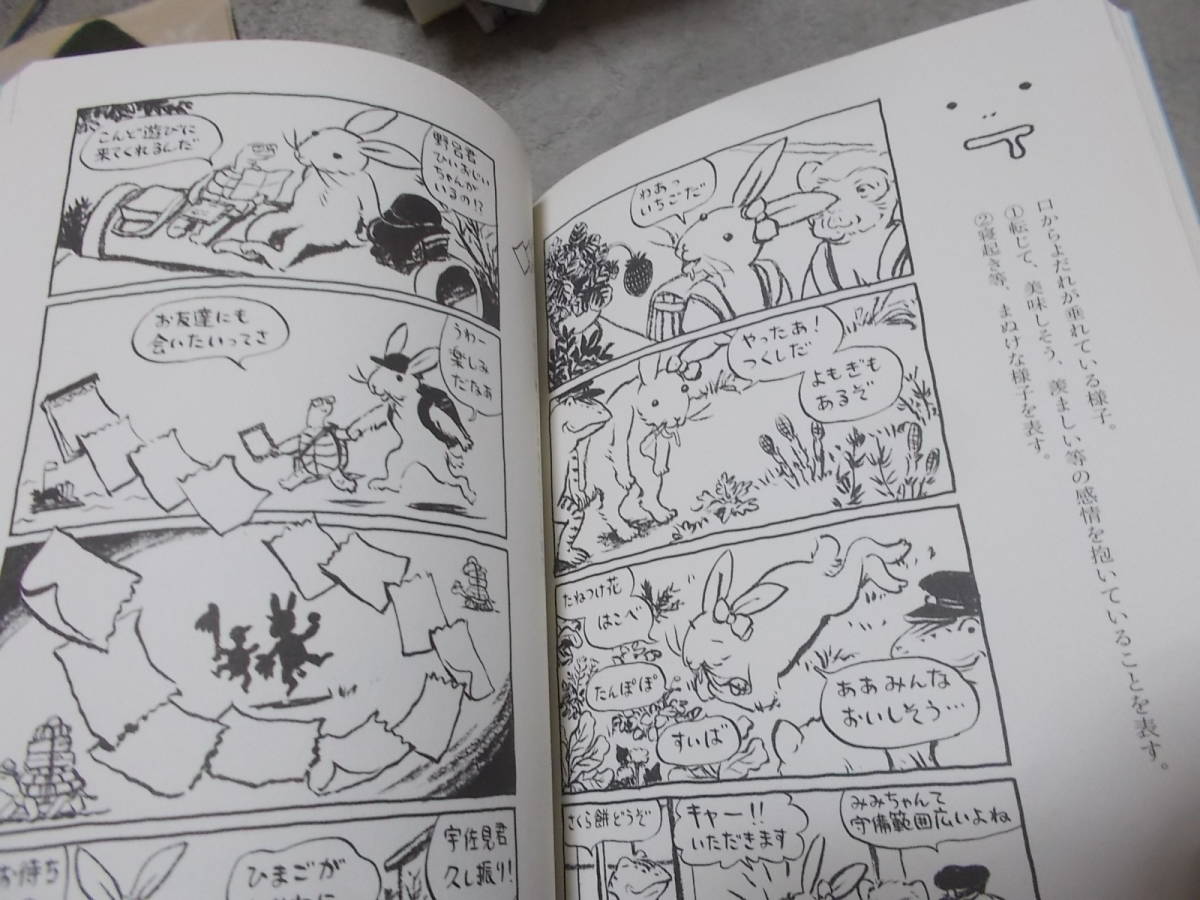 口からよだれが垂れている様子。
①転じて、美味しそう、羨ましい等の感情を抱いていることを表す。
②寝起き等、まぬけな様子を表す。
わあっ
いちごだ
やったあ！
つくしだ
よもぎも
あるぞ
たねつけ花
はこべ
たんぽぽ
すいば
ああみんな
おいしそう…
みみちゃんて
守備範囲広いよね
キャー!!
いただきます
さくら餅どうぞ
野呂君
ひいおじい
ちゃんが
いるの!?
こんど遊びに
来てくれるんだ
うわー
楽しみ
だなぁ
お友達にも
会いたいってさ
宇佐見君
久し振り!
ひまごが
お待ち